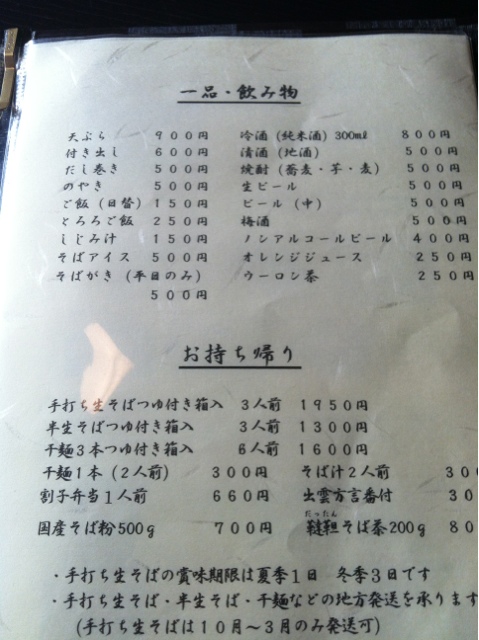 一品・飲み物
天ぷら 900円 冷酒(純米酒)300㎖ 800円
付き出し 600円 清酒(地酒) 500円
だし巻き 500円 焼酎(蕎麦・芋・麦) 500円
のやき 500円 生ビール 500円
ご飯(日替) 150円 ビール(中) 500円
とろろご飯 250円 梅酒 500円
しじみ汁 150円 ノンアルコールビール 400円
そばアイス 500円 オレンジジュース 250円
そばがき(平日のみ) ウーロン茶 250円
500円
お持ち帰り
手打ち生そばつゆ付き箱入 3人前 1950円
半生そばつゆ付き箱入 3人前 1300円
干麺3本つゆ付き箱入 6人前 1600円
干麺1本(2人前) 300円 そば汁2人前 30
割子弁当1人前 660円 出雲方言番付 30
国産そば粉500g 700円 韃靼そば茶200g 80
だったん
・手打ち生そばの賞味期限は夏季1日 冬季3日です
・手打ち生そば・半生そば・干麺などの地方発送を承ります
(手打ち生そばは10月~3月のみ発送可)